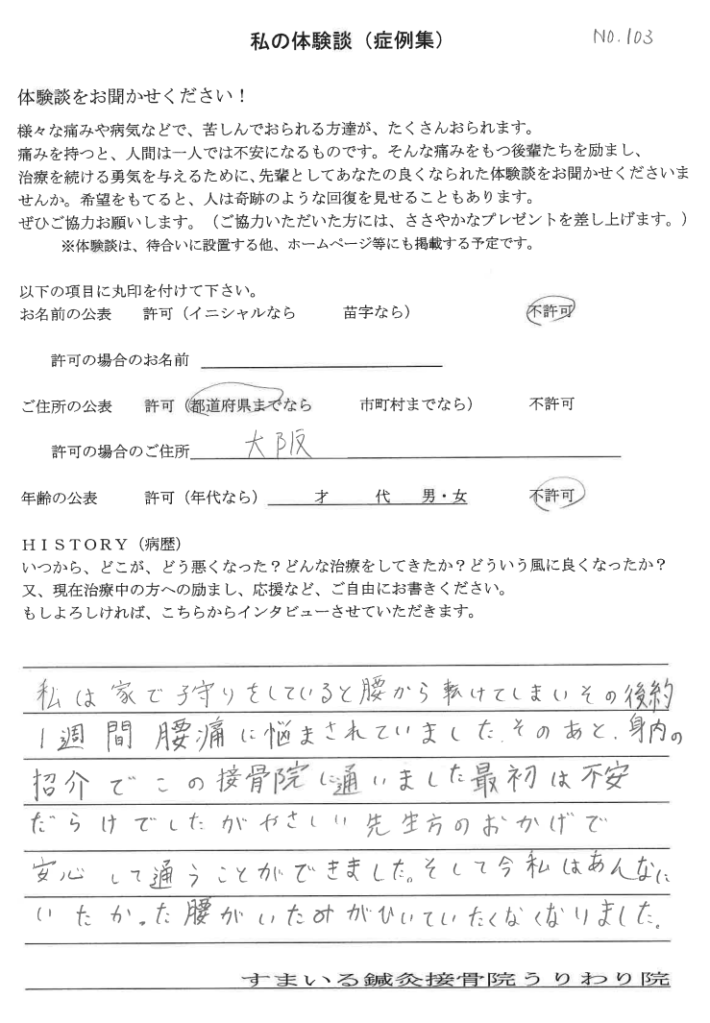 私の体験談（症例集）
NO.103
体験談をお聞かせください！
様々な痛みや病気などで、苦しんでおられる方達が、たくさんおられます。
痛みを持つと、人間は一人では不安になるものです。そんな痛みをもつ後輩たちを励まし、
治療を続ける勇気を与えるために、先輩としてあなたの良くなられた体験談をお聞かせくださいま
せんか。希望をもてると、人は奇跡のような回復を見せることもあります。
ぜひご協力お願いします。（ご協力いただいた方には、ささやかなプレゼントを差し上げます。）
※体験談は、待合いに設置する他、ホームページ等にも掲載する予定です。
以下の項目に丸印を付けて下さい。
お名前の公表 許可（イニシャルなら 苗字なら） 不許可
許可の場合のお名前
ご住所の公表 許可（都道府県までなら 市町村までなら） 不許可
許可の場合のご住所 大阪
年齢の公表 許可（年代なら） 才 代 男・女 不許可
ＨＩＳＴＯＲＹ（病歴）
いつから、どこが、どう悪くなった？どんな治療をしてきたか？どういう風に良くなったか？
又、現在治療中の方への励まし、応援など、ご自由にお書きください。
もしよろしければ、こちらからインタビューさせていただきます。
私は家で子守りをしていると腰から転けてしまいその後約
1週間腰痛に悩まされていました。そのあと、身内の
紹介でこの接骨院に通いました最初は不安
だらけでしたがやさしい先生方のおかげで
安心して通うことができました。そして今私はあんなに
いたかった腰がいたみがひいていたくなくなりました。
すまいる鍼灸接骨院うりわり院